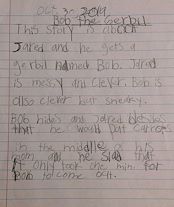 Oct. 3- 2019
Bob The Gerbil
This story is about
Jared and he gets a
gerbil named Bob. Jared
is messy and clever. Bob is
also clever but sneaky.
Bob hides and Jared
that he would put carrots
in the middle of his
room and he said that
it only took one min. for
Bob to come out.